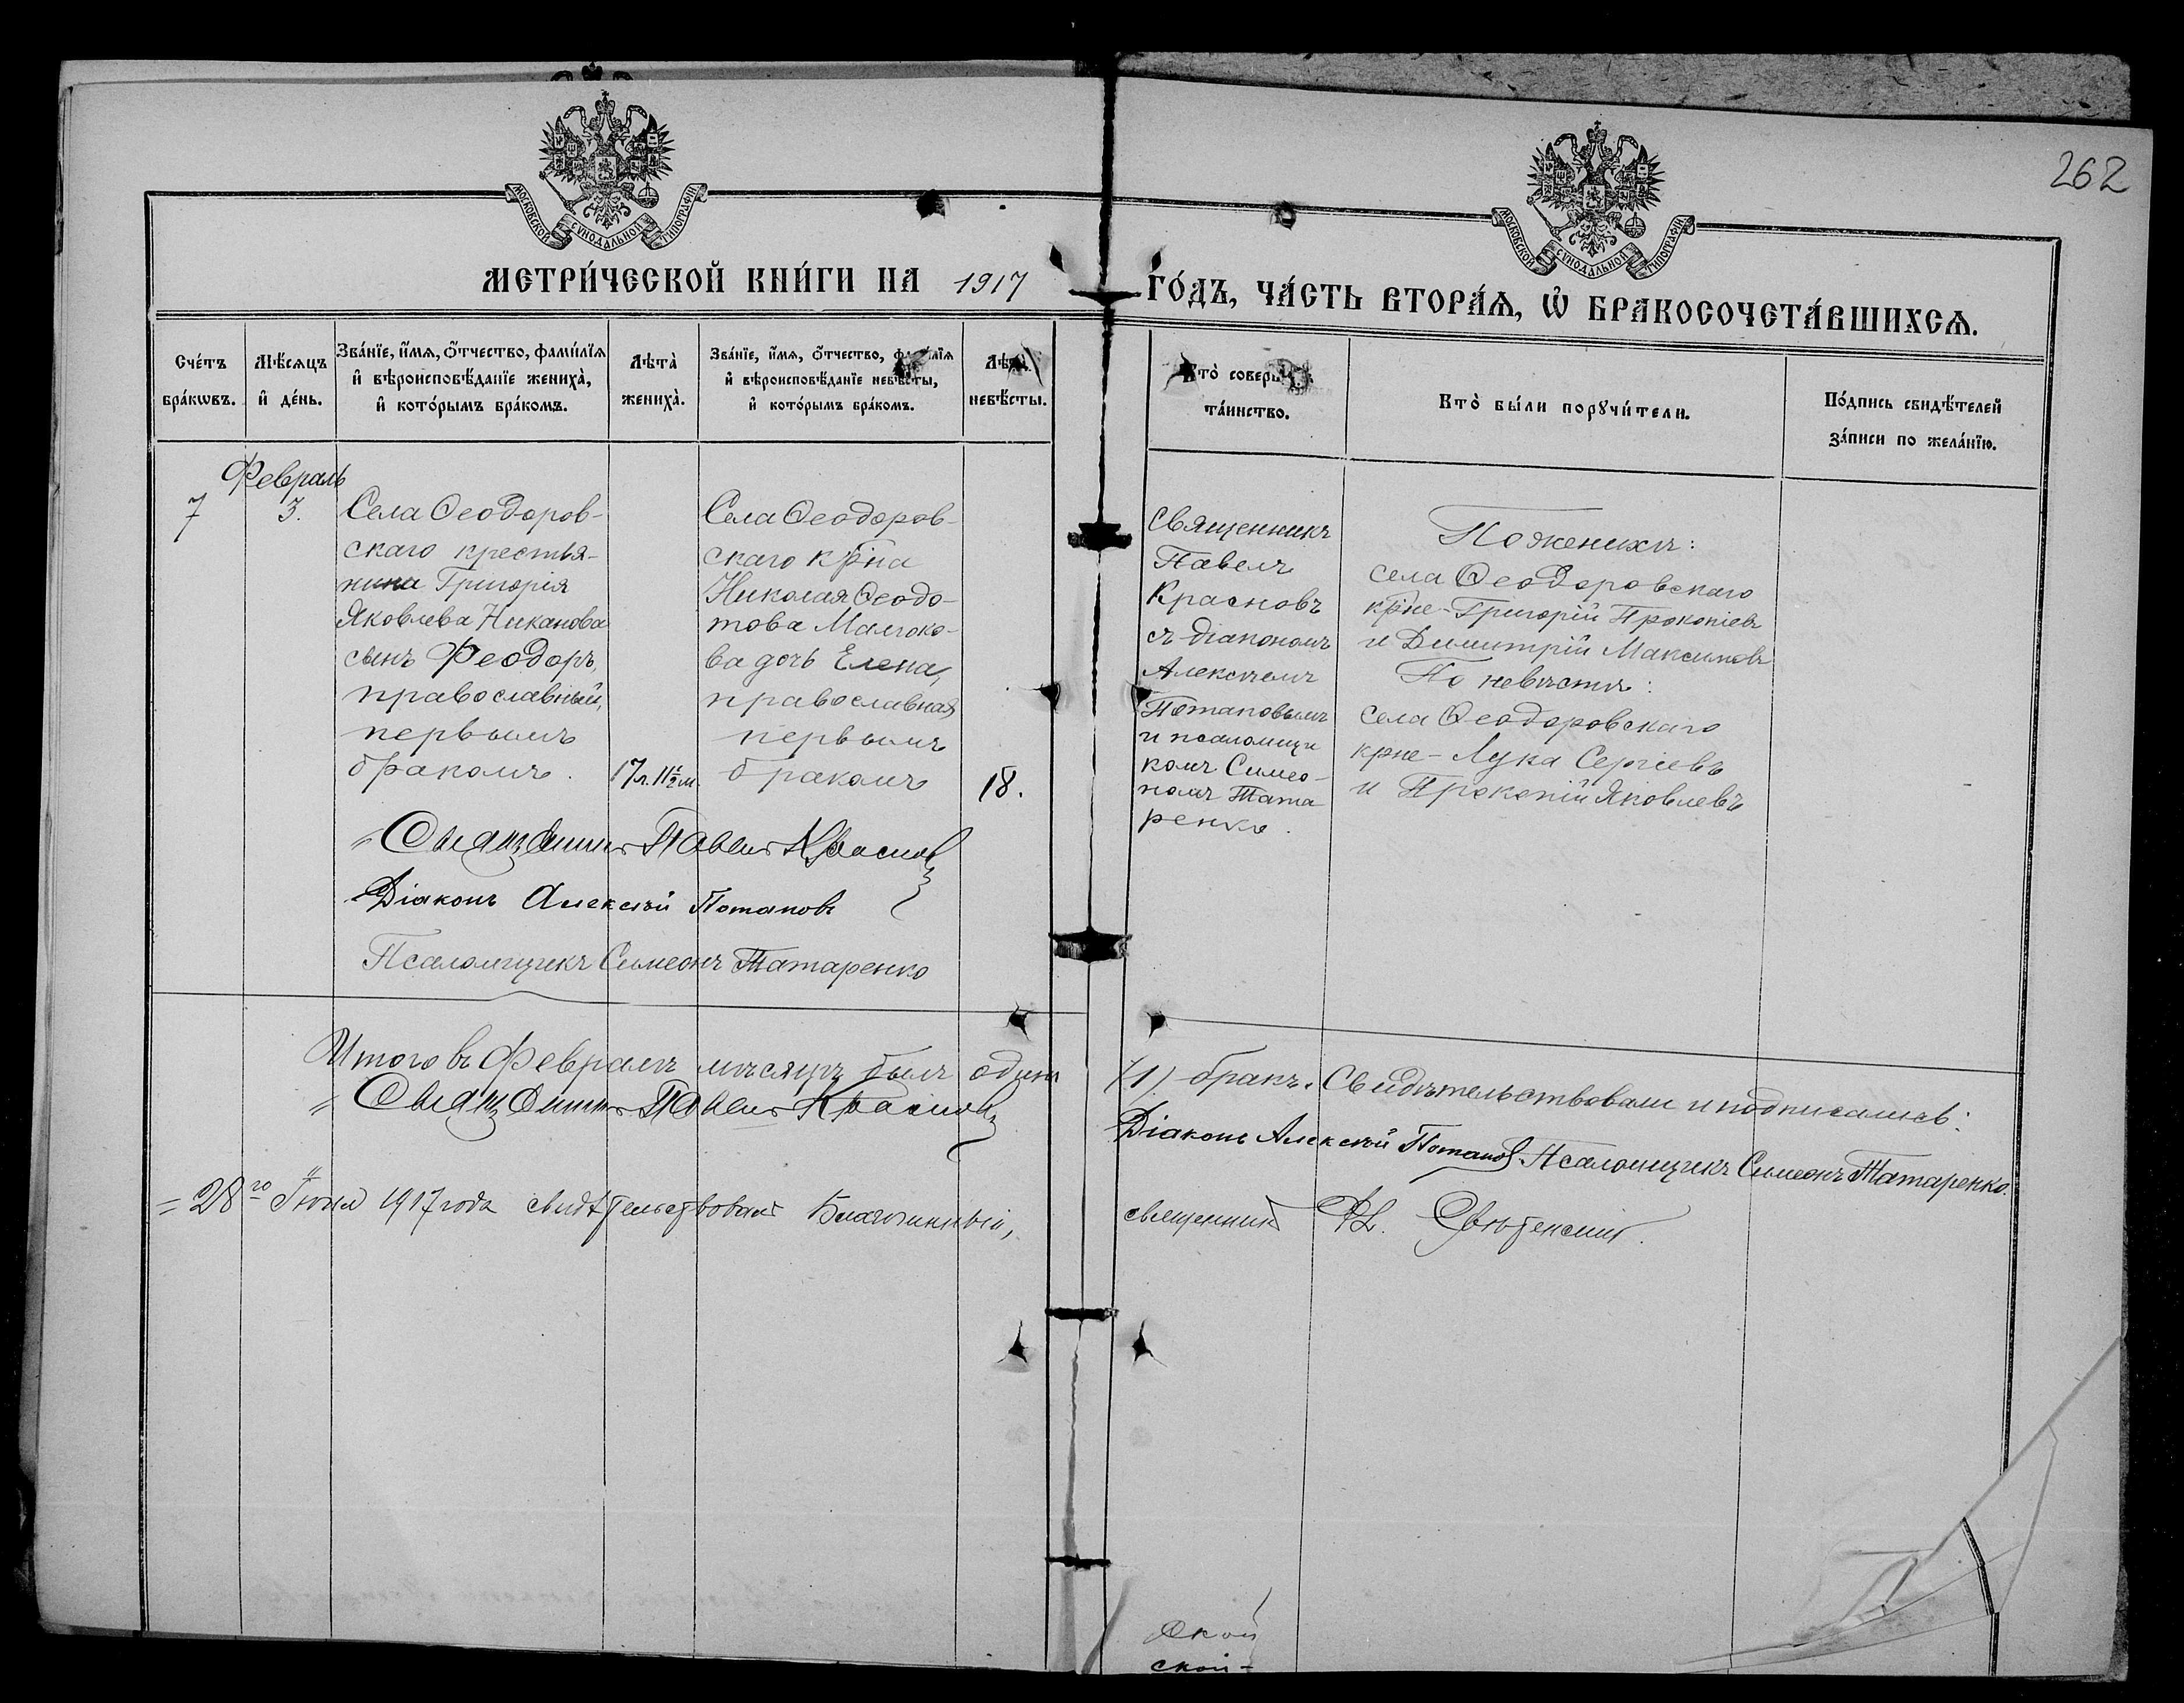 262
МОСКОВСКОЙ СѴНОДАЛЬНОЙ ТИПОГРАФІИ
МОСКОВСКОЙ СѴНОДАЛЬНОЙ ТИПОГРАФІИ
МЕТРИ́ЧЕСКОЙ КНИ́ГИ НА 1917 ГО́ДЪ, ЧА́СТЬ ВТОРА́Ѧ, Ѡ҆ БРАКОСОЧЕТА́ВШИХСѦ.
Сче́тъ
бра́кѡвъ.
Мѣ́сѧцъ
и҆ де́нь.
Зва́нїе, и҆́мѧ, ѻ҆́тчество, фами́лїѧ
и҆ вѣроисповѣ́данїе жениха̀,
и҆ кото́рымъ бра́комъ.
Лѣта̀
жениха̀.
Зва́нїе, и҆́мѧ, ѻ҆́тчество, фами́лїѧ
и҆ вѣроисповѣ́данїе невѣ́сты,
и҆ кото́рымъ бра́комъ.
Лѣта̀
невѣ́сты.
Кто̀ соверша́лъ
та́инство.
Кто̀ бы́ли порꙋчи́тели.
По́дпись свидѣ́телей
за́писи по жела́нїю.
Февраль
7
3.
Села Ѳеодоров-
скаго крестья-
нина Григорія
Яковлева Никанова
сынъ Феодоръ,
православный,
первымъ
бракомъ.
17 л. 11½ м.
Села Ѳеодоров-
скаго крна
Николая Ѳеодо-
това Малюко-
ва дочь Елена,
православная
первымъ
бракомъ
18.
Священникъ
Павелъ
Красновъ
съ діакономъ
Алексѣемъ
Потаповымъ
и псаломщи
комъ Симео-
номъ Тата
ренко.
По женихѣ:
села Ѳеодоровскаго
крне - Григорій Прокопіевъ
и Димитрій Максимовъ
По невѣстѣ:
села Ѳеодоровскаго
крне - Лука Сергіевъ
и Прокопій Яковлевъ
Священникъ Павелъ Красновъ
Діаконъ Алексѣй Потаповъ
Псаломщикъ Симеонъ Татаренко
Итого въ Февралѣ мѣсяцѣ былъ одинъ /1/ бракъ. Свидѣтельствовали и подписались:
Священникъ Павелъ Красновъ Діаконъ Алексѣй Потаповъ Псаломщикъ Симеонъ Татаренко.
= 28го Іюня 1917 года свидѣтельствовалъ Благочинный, священникъ
ской-